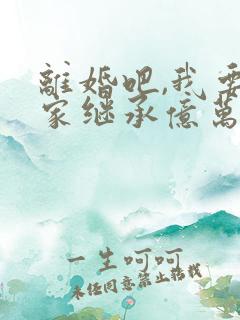 離婚吧,我要
家继承億萬
一生呵呵
未经同意禁止转载